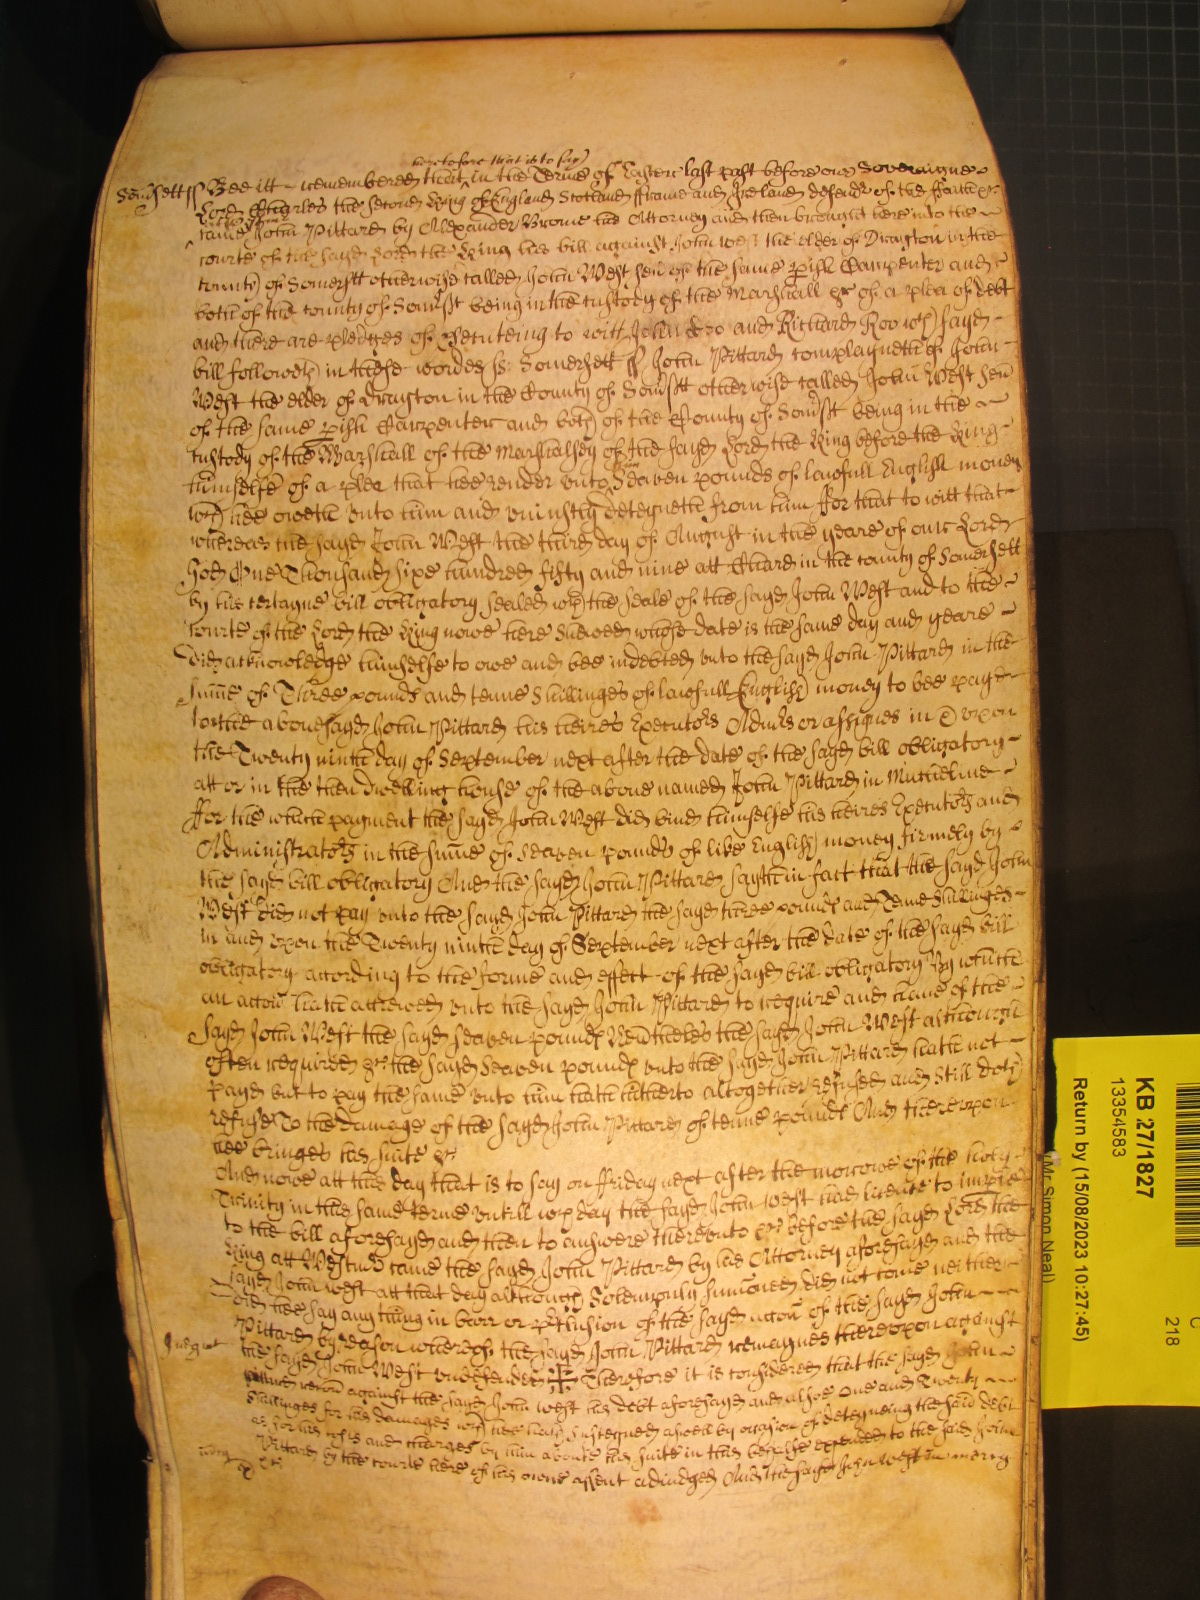 heretofore that is to say
Somsett ss Bee itt remembered that in the Terme of Easter last past before our Soveraigne
Lord Charles the second King of England Scotland ffrance and Ireland defendr of the ffaith &c
came John Pittard by Alexander Browne his Attorney and then brought here into the
courte of the sayd Lord the King his bill against John West the elder of Drayton in the
county of Somersett otherwise called John West senr of the same pish Carpenter and
both of the county of Somsett being in the custody of the Marshall &c of a plea of debt
and there are pledges of prosecuting to witt John Doo and Richard Roo wch sayd
bill followeth in these wordes ss: Somersett ss John Pittard complayneth of John
West the elder of Drayton in the County of Somsett otherwise called John West senr
of the same pish Carpenter and both of the County of Somsett being in the
custody of the Marshall of the Marshalsey of the sayd Lord the King before the King
himselfe of a plea that hee render unto him Seaven pounds of lawfull English money
wch hee oweth unto him and uniustly deteyneth from him ffor that to witt that
whereas the sayd John West the third day of August in the yeare of our Lord
God One Thousand sixe hundred fifty and nine att Chard in the county of Somersett
by his certayne bill obligatory sealed wth the seale of the sayd John West and to the
Courte of the Lord the King nowe here shewed whose date is the same day and yeare
did acknowledge himselfe to owe and bee indebted unto the sayd John Pittard in the
summe of Three pounds and tenne shillinges of lawfull English money to bee payd
to the abovesayd John Pittard his heires Executors Admrs or assignes in & upon
the Twenty ninth day of September next after the date of the sayd bill obligatory
att or in the then dwelling house of the above named John Pittard in Mucheline
ffor the which payment the sayd John West did bind himselfe his heires Executors and
Administrators in the summe of seaven pounds of like English money firmely by
the sayd bill obligatory And the sayd John Pittard sayth in fact that the sayd John
West did not pay unto the sayd John Pittard the sayd three pounds and Tenne shillinges
in and upon the Twenty ninth day of September next after the date of the sayd bill
obligatory according to the forme and effect of the sayd bill obligatory By which
an accon hath accrewed unto the sayd John Pittard to require and have of the
sayd John West the sayd seaven pounds Neverthelesse the sayd John West although
often required &c the sayd seaven pounds unto the sayd John Pittard hath not
payd but to pay the same unto him hath hitherto altogether refused and still doth
refuse To the damage of the sayd John Pittard of tenne pounds And thereupon
hee bringes his suite &c
And nowe att this day that is to say on ffriday next after the morrowe of the holy
Trinity in this same terme untill wch day the sayd John West had licence to imparle
to the bill aforesayd and then to answere thereunto &c before the sayd Lord the
King att Westmr came the sayd John Pittard by his Attorney aforesayd and the
sayd John West att that day although Solempnly sumoned did not come neither
did hee say any thing in barr or preclusion of the sayd accon of the sayd John
Pittard by reason whereof the sayd John Pittard remaynes thereupon against
Judgmt the sayd John West undefended Therefore it is considered that the sayd John
Pittard recover against the sayd John West his debt aforesayd and alsoe One and Twenty
shillinges for his damages wch hee hath susteyned aswell by occasion of deteyneing the said debt
as for his costs and charges by him aboute his suite in this behalfe expended to the said John
Pittard by the courte here of his owne assent adiudged And the sayd John West in mercy
&c